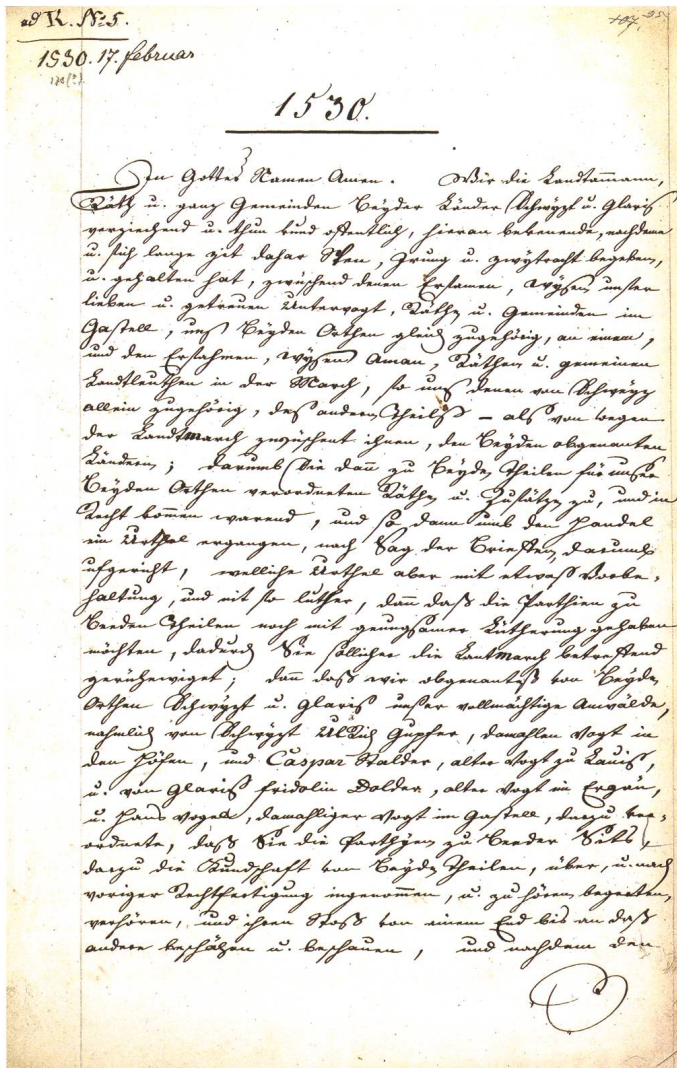 ad K. No 5.
1530. 17. februar
1530.
In Gottes Namen Amen. Wir die Landtammann,
Räth u. ganz Gemeinden Beyder Länder Schwÿzt u. Glaris
verziechend u. thun kund offentlich, hieran bekenende, nachdeme
u. sich lange zit dahar Sten, Irung u. zwÿtracht begeben,
u. gehalten hat, zwüschend denen Ersamen, Wÿsen unser
lieben u. getreuen Untervogt, Räthe u. Gemeinden im
Gastell, uns Beyden Orthen gleich zugehörig, an einem,
und den Ersahmen, Wÿsen Aman, Räthen u. gemeinen
Landtleuthen in der March, so uns denen von Schweÿz
allein zugehörig, des andern Theils – als von wegen
der Landtmarch zwüschent ihnen, den Beyden obgenanten
Ländern; darumb Sie dann zu Beyden Theilen für unser
Beyden Orthen verordneten Räthe u. Zusätze zu, und in
Recht kommen warend, und so dann umb den Handel
ein Urthel ergangen, nach Sag der Brieffen, darumb
ufgericht, welliche Urthel aber mit etwaß Vorbe-
haltung, und nit so luther, dann daß die Parthien zu
Beeden Theilen noch mit genugsamer Lütherung gehaben
möchten, dadurch Sie söllicher die Lantmarch betreffend
gerüchewiget; dann daß wir obgenante von Beyden
Orthen Schwÿzt u. Glaris unser vollmächtige Anwälde,
nahmlich von Schwÿzt Ulrich Gupfer, damahlen Vogt in
den Höfen, und Caspar Stalder, alter Vogt zu Lauis,
u. von Glaris fridolin Dolder, alter Vogt im Ergöu,
u. Hans Vogel, damahliger Vogt im Gastell, darzu ver-
ordnete, daß Sie die Parthÿen zu Beeder Sits,
darzu die Kundschaft von Beyden Theilen, über, u. nach
voriger Rechtfertigung ingenommen, u. zu hören begerten,
verhören, und ihren Stoß von einem End bis an daß
andere beschätzen u. beschauen, und nachdem den